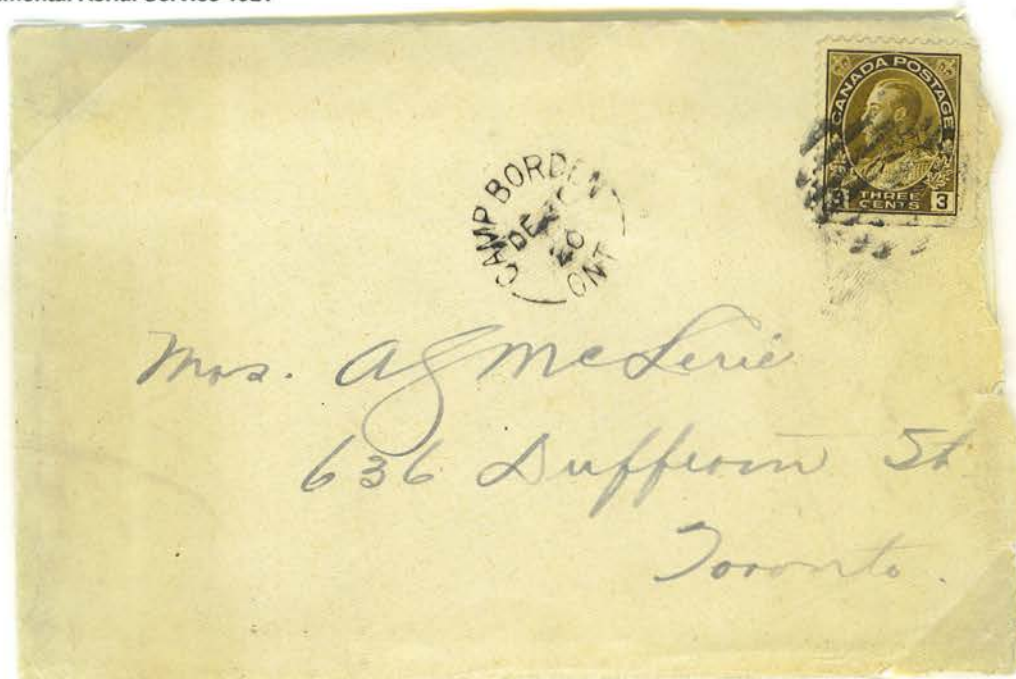 Aerial Service 1921
CANADA POSTAGE
3 THREE CENTS 3
CAMP BORDEN
DE
20
ONT
Mrs. AG McLerie
636 Dufferin St
Toronto.